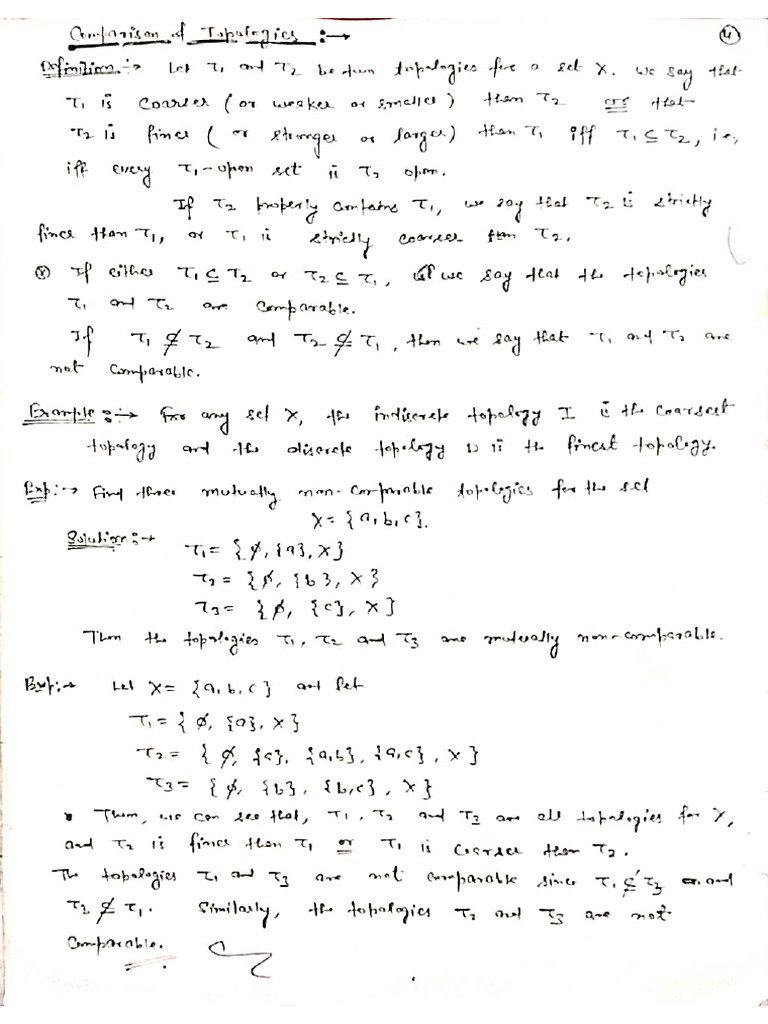 Comparison of Topologies :→
4
Definition :→ Let τ₁ and τ₂ be two topologies for a set X. we say that
τ₁ is coarser (or weaker or smaller) than τ₂ or that
τ₂ is finer (or stronger or larger) than τ₁ iff τ₁ ⊆ τ₂, i.e,
iff every τ₁-open set is τ₂ open.
If τ₂ properly contains τ₁, we say that τ₂ is strictly
finer than τ₁, or τ₁ is strictly coarser than τ₂.
⊗ If either τ₁ ⊆ τ₂ or τ₂ ⊆ τ₁, we say that the topologies
τ₁ and τ₂ are comparable.
If τ₁ ⊄ τ₂ and τ₂ ⊄ τ₁, then we say that τ₁ and τ₂ are
not comparable.
Example :→ For any set X, the indiscrete topology I is the coarsest
topology and the discrete topology D is the finest topology.
Exp:→ Find three mutually non-comparable topologies for the set
X = {a, b, c}.
Solution :→
τ₁ = {ϕ, {a}, X}
τ₂ = {ϕ, {b}, X}
τ₃ = {ϕ, {c}, X}
Then the topologies τ₁, τ₂ and τ₃ are mutually non-comparable.
Exp:→ Let X = {a, b, c} and let
τ₁ = {ϕ, {a}, X}
τ₂ = {ϕ, {a}, {a,b}, {a,c}, X}
τ₃ = {ϕ, {b}, {b,c}, X}
• Then, we can see that, τ₁, τ₂ and τ₃ are all topologies for X,
and τ₂ is finer than τ₁ or τ₁ is coarser than τ₂.
The topologies τ₁ and τ₃ are not comparable since τ₁ ⊄ τ₃ and
τ₃ ⊄ τ₁. Similarly, the topologies τ₂ and τ₃ are not
comparable.